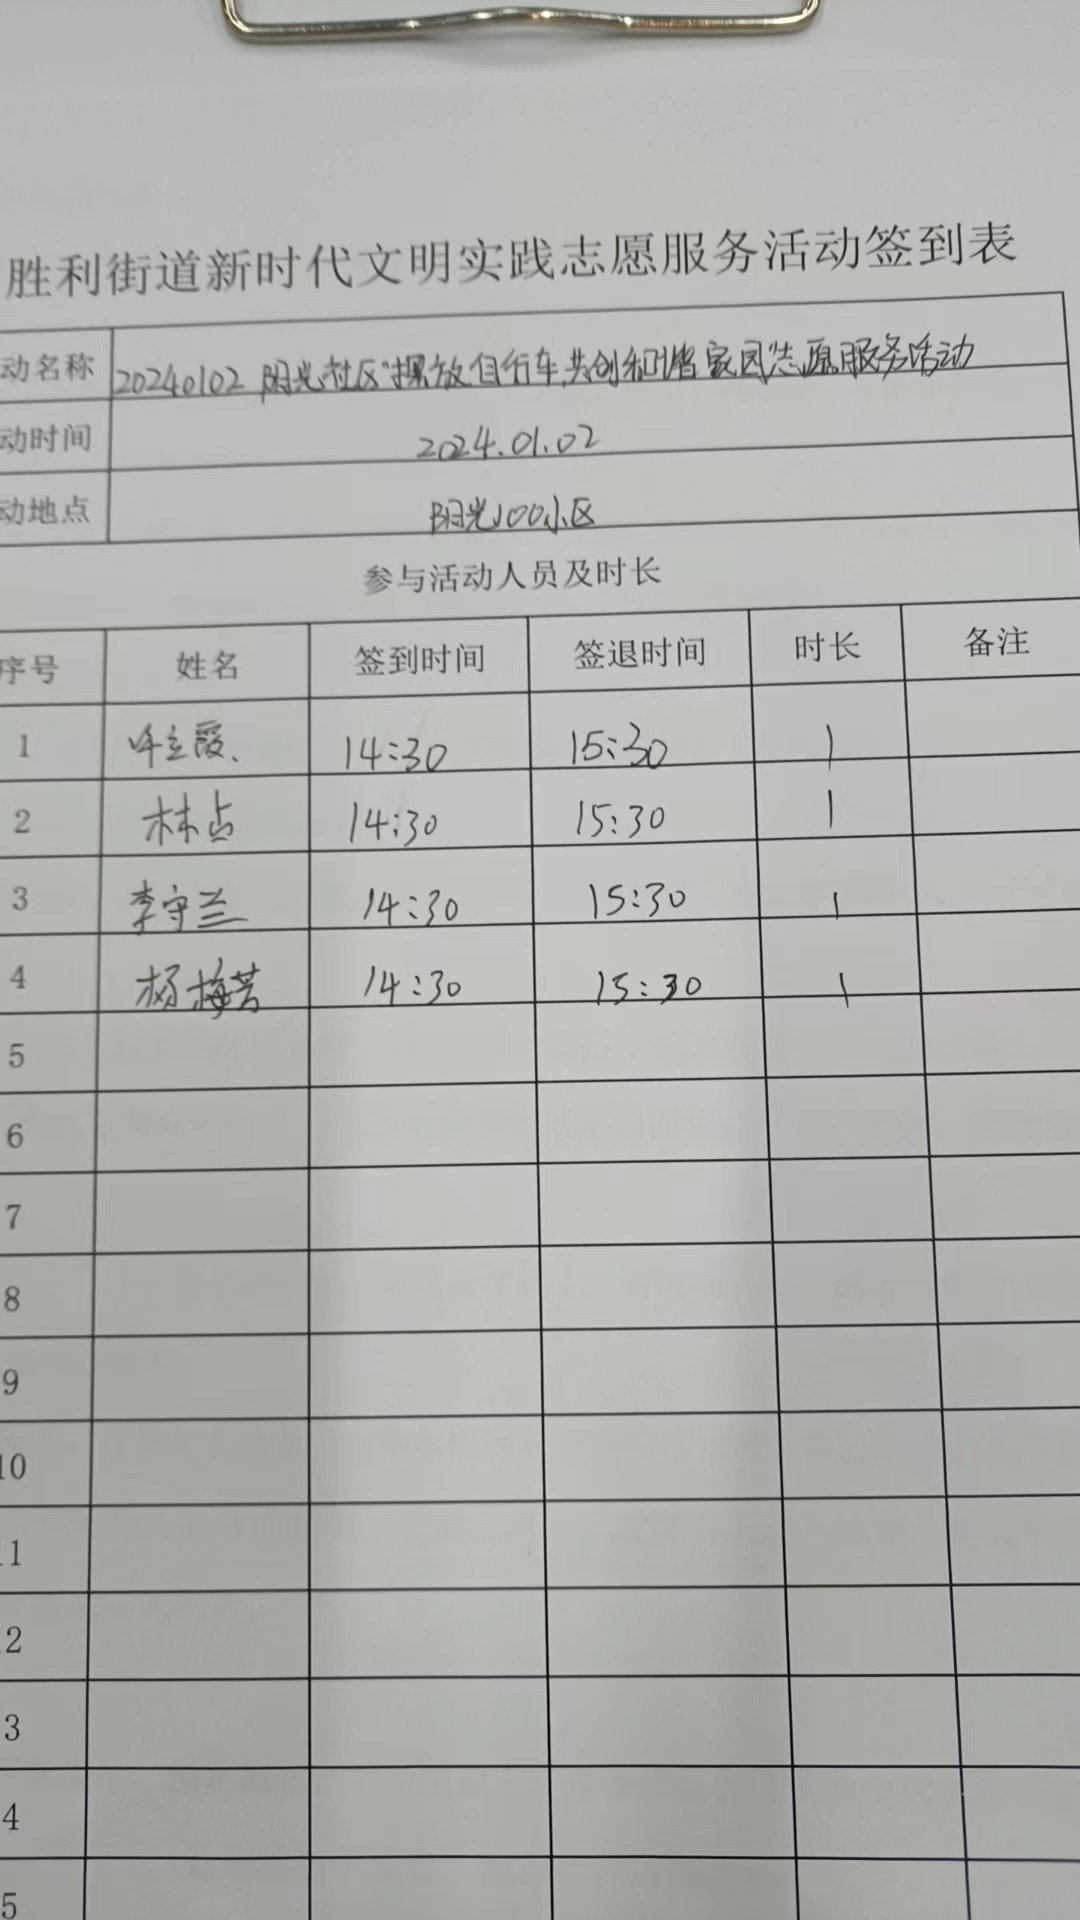 胜利街道新时代文明实践志愿服务活动签到表
动名称 20240102 阳光社区“摆放自行车,共创和谐家园”志愿服务活动
动时间 2024.01.02
动地点 阳光100小区
参与活动人员及时长
序号 姓名 签到时间 签退时间 时长 备注
1 14:30 15:30 1
2 林占 14:30 15:30 1
3 李守兰 14:30 15:30 1
4 杨梅芳 14:30 15:30 1
5
6
7
8
9
10
11
2
3
4
5